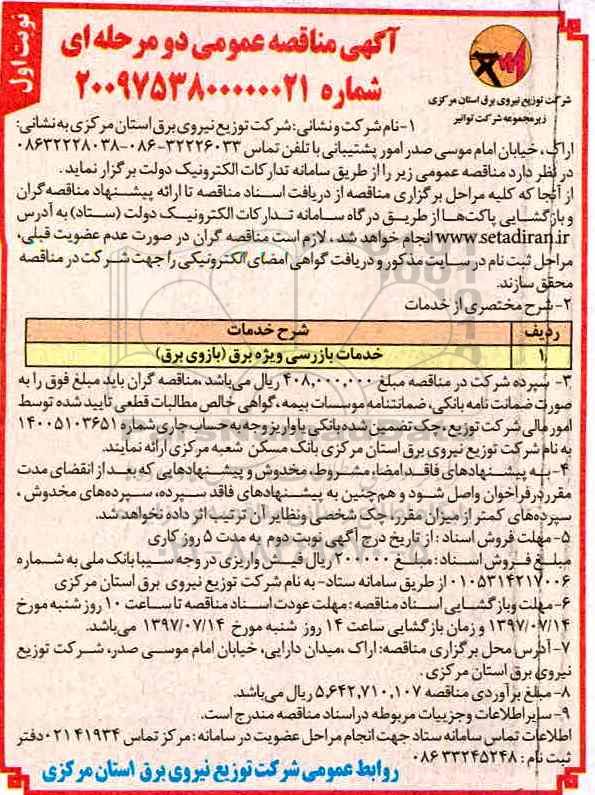 نوبت اول
آگهی مناقصه عمومی دو مرحله ای
شماره ۲۰۰۹۷۵۳۸۰۰۰۰۰۰۲۱
شرکت توزیع نیروی برق استان مرکزی
زیرمجموعه شرکت توانیر
۱-نام شرکت و نشانی: شرکت توزیع نیروی برق استان مرکزی به نشانی:
اراک، خیابان امام موسی صدر امور پشتیبانی با تلفن تماس ۳۲۲۲۶۰۳۳-۰۸۶-۰۸۶۳۲۲۲۸۰۳۸
در نظر دارد مناقصه عمومی زیر را از طریق سامانه تدارکات الکترونیک دولت برگزار نماید.
از آنجا که کلیه مراحل برگزاری مناقصه از دریافت اسناد مناقصه تا ارائه پیشنهاد مناقصه گران
و بازگشایی پاکت‌ها از طریق درگاه سامانه تدارکات الکترونیک دولت (ستاد) به آدرس
www.setadiran.ir انجام خواهد شد، لازم است مناقصه گران در صورت عدم عضویت قبلی،
مراحل ثبت نام در سایت مذکور و دریافت گواهی امضای الکترونیکی را جهت شرکت در مناقصه
محقق سازند.
۲-شرح مختصری از خدمات
ردیف شرح خدمات
۱ خدمات بازرسی ویژه برق (بازوی برق)
۳- سپرده شرکت در مناقصه مبلغ ۴۰۸,۰۰۰,۰۰۰ ریال می‌باشد،مناقصه گران باید مبلغ فوق را به
صورت ضمانت نامه بانکی، ضمانتنامه موسسات بیمه، گواهی خالص مطالبات قطعی تایید شده توسط
امور مالی شرکت توزیع، چک تضمین شده بانکی یا واریز وجه به حساب جاری شماره ۱۴۰۰۵۱۰۳۶۵۱
به نام شرکت توزیع نیروی برق استان مرکزی بانک مسکن شعبه مرکزی ارائه نمایند.
۴-به پیشنهادهای فاقد امضا، مشروط، مخدوش و پیشنهادهایی که بعد از انقضای مدت
مقرر در فراخوان واصل شود و هم‌چنین به پیشنهادهای فاقد سپرده، سپرده‌های مخدوش ،
سپرده‌های کمتر از میزان مقرر، چک شخصی ونظایر آن ترتیب اثر داده نخواهد شد.
۵-مهلت فروش اسناد : از تاریخ درج آگهی نوبت دوم به مدت ۵ روز کاری
مبلغ فروش اسناد: مبلغ ۲۰۰۰۰۰ ریال فیش واریزی در وجه سیبا بانک ملی به شماره
۰۱۰۵۳۱۴۲۱۷۰۰۶ از طریق سامانه ستاد- به نام شرکت توزیع نیروی برق استان مرکزی
۶-مهلت وبازگشایی اسناد مناقصه : مهلت عودت اسناد مناقصه تا ساعت ۱۰ روز شنبه مورخ
۱۳۹۷/۰۷/۱۴ و زمان بازگشایی ساعت ۱۴ روز شنبه مورخ ۱۳۹۷/۰۷/۱۴ می‌باشد.
۷-آدرس محل برگزاری مناقصه: اراک ،میدان دارایی، خیابان امام موسی صدر، شرکت توزیع
نیروی برق استان مرکزی.
۸-مبلغ برآوردی مناقصه ۵,۶۴۲,۷۱۰,۱۰۷ ریال می‌باشد.
۹-سایر اطلاعات وجزییات مربوطه در اسناد مناقصه مندرج است.
اطلاعات تماس سامانه ستاد جهت انجام مراحل عضویت در سامانه : مرکز تماس ۴۱۹۳۴ ۰۲۱دفتر
ثبت نام : ۳۳۲۴۵۲۴۸ ۰۸۶
روابط عمومی شرکت توزیع نیروی برق استان مرکزی